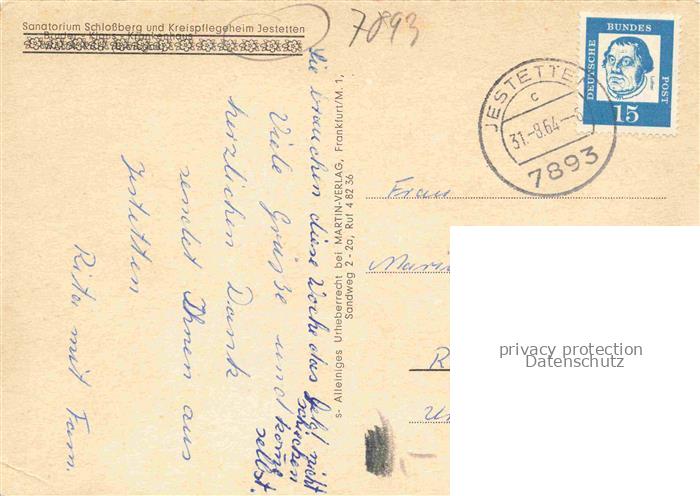 Sanatorium Schloßberg und Kreispflegeheim Jestetten
7893
DEUTSCHE BUNDES POST
15
JESTETTEN
c
31.-8.64
7893
Sie brauchen diese Woche das Geld nicht
schicken
komme
selbst.
Viele Grüsse und
herzlichen Dank
sendet Ihnen aus
Jestetten
Ritter mit Fam.
s- Alleiniges Urheberrecht bei MARTIN-VERLAG, Frankfurt/M. 1,
Sandweg 2 - 2a, Ruf 4 82 36
Frau
Mari
R
privacy protection
Datenschutz